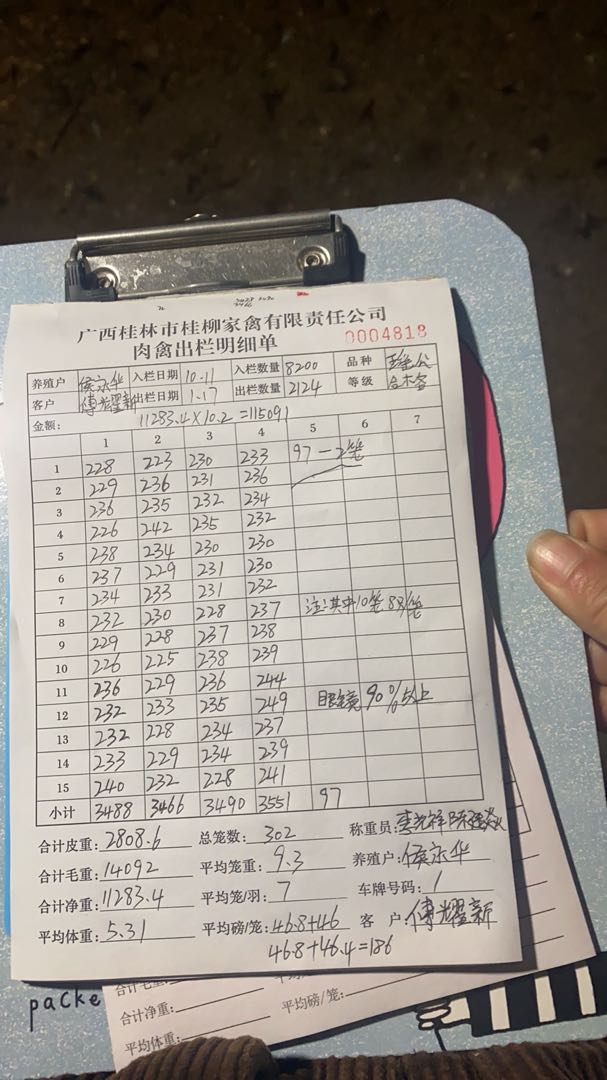 广西桂林市桂柳家禽有限责任公司
肉禽出栏明细单 0004818
养殖户 侯永华 入栏日期 10.11 入栏数量 8200 品种
客户 傅耀新 出栏日期 1.17 出栏数量 2124 等级
金额: 11283.4×10.2=115091
1 2 3 4 5 6 7
1 228 223 230 233 97-2笼
2 229 236 231 236
3 236 235 232 234
4 226 242 235 232
5 238 234 230 230
6 237 229 231 230
7 234 233 231 232
8 232 230 228 237 注:其中10笼8只/笼
9 229 228 237 238
10 226 225 238 239
11 236 229 236 244
12 232 233 235 249 眼镜90%以上
13 232 228 234 237
14 233 229 234 239
15 240 232 228 241
小计 3488 3466 3490 3551 97
合计皮重: 2808.6 总笼数: 302 称重员:
合计毛重: 14092 平均笼重: 9.3 养殖户: 侯永华
合计净重: 11283.4 平均笼/羽: 7 车牌号码: 1
平均体重: 5.31 平均磅/笼: 46.8+46 客户: 傅耀新
46.8+46.4=186
合计毛重:
合计净重: 平均磅/笼:
平均体重:
packe